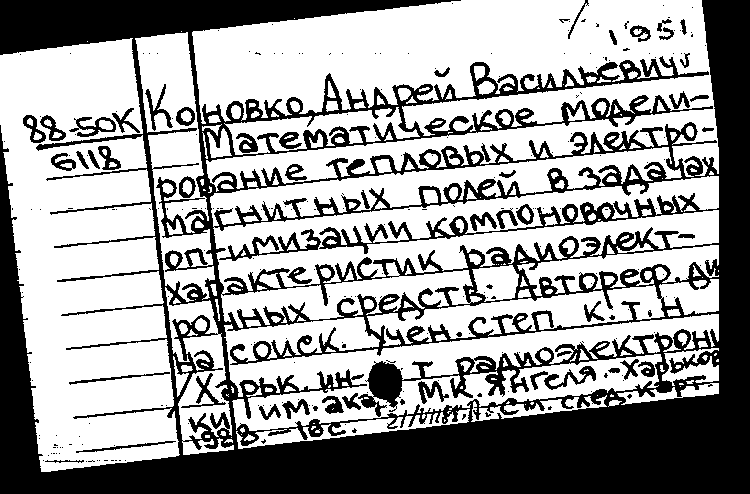 1951
88-50К Коновко, Андрей Васильевич
6118 Математическое модели-
рование тепловых и электро-
магнитных полей в задачах
оптимизации компоновочных
характеристик радиоэлект-
ронных средств: Автореф. ди
на соиск. учен. степ. к.т.н.
/Харьк. ин- т радиоэлектрони
ки им. акад. М.К. Янгеля.-Харьков
1988.-16с. См. след. карт.